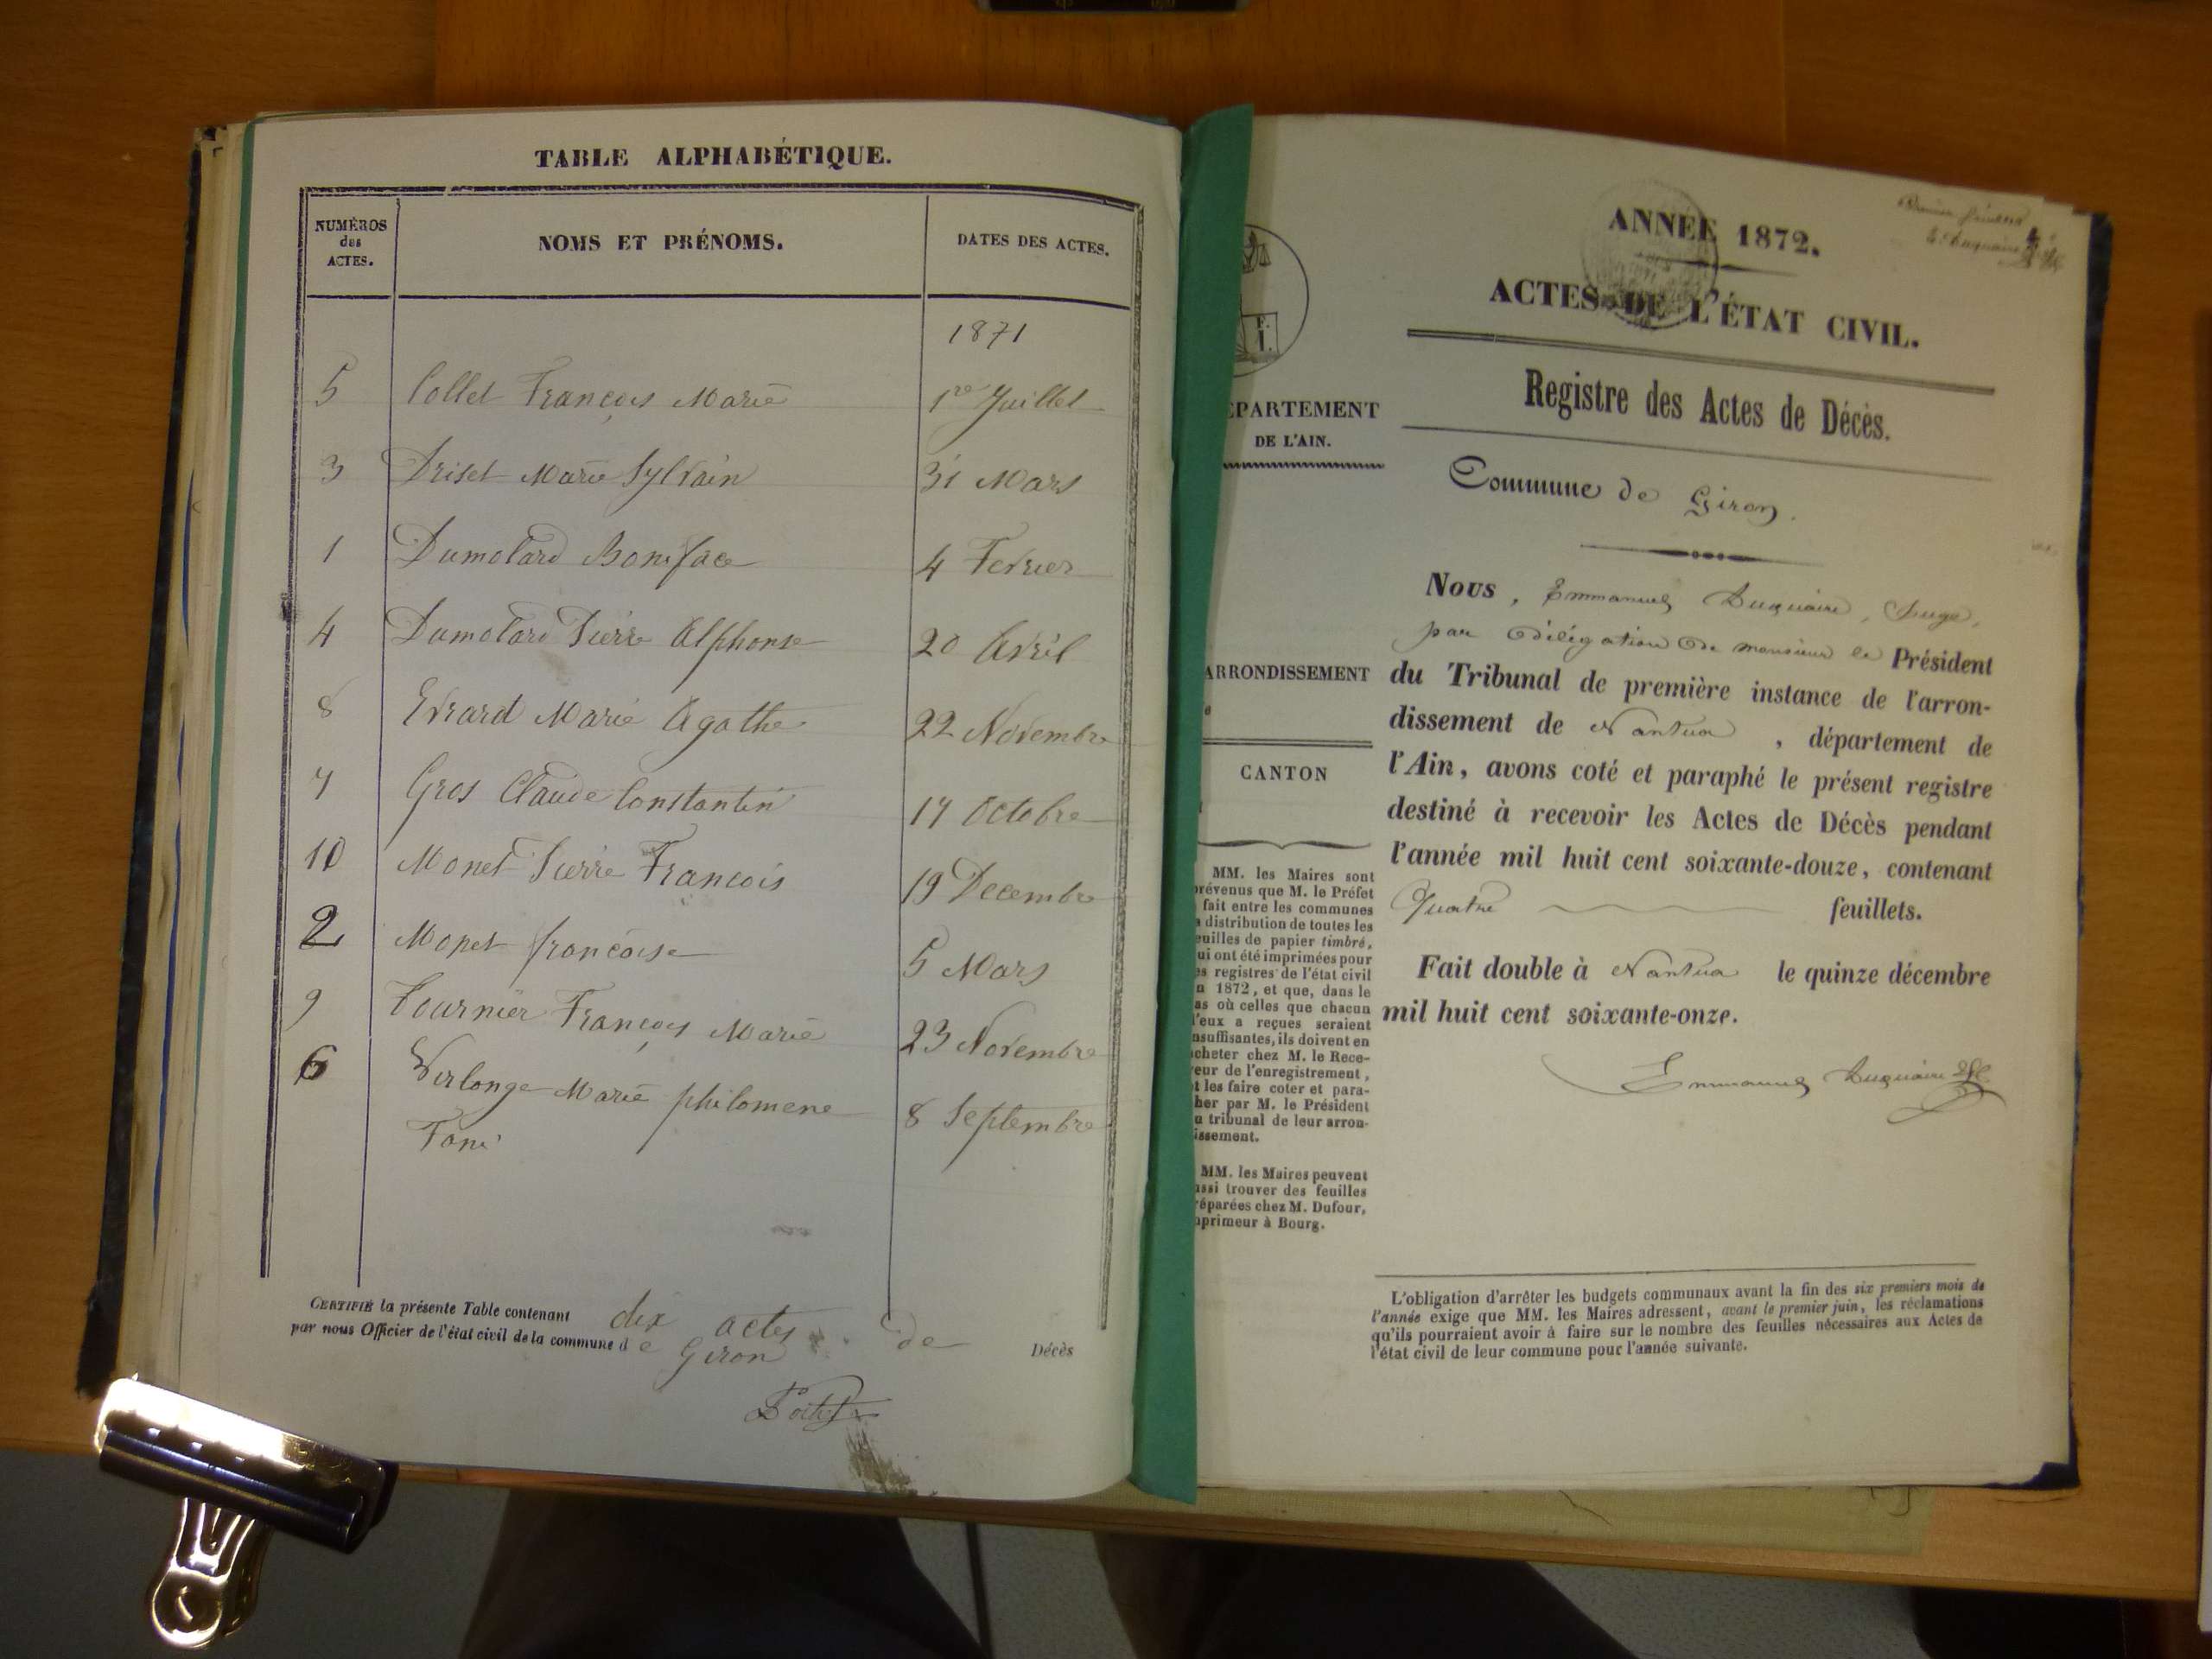 TABLE ALPHABÉTIQUE.
NUMÉROS des ACTES.
NOMS ET PRÉNOMS.
DATES DES ACTES.
1871
5 Collet François Marie 1re Juillet
3 Driset Marie Sylvain 31 Mars
1 Dumolard Boniface 4 Fevrier
4 Dumolard Pierre Alphonse 20 Avril
8 Evrard Marie Agathe 22 Novembre
7 Gros Claude Constantin 17 Octobre
10 Monet Pierre François 19 Decembre
2 Monet françoise 5 Mars
9 Tournier François Marie 23 Novembre
6 Verlonge Marie philomene 8 Septembre
Fani
CERTIFIÉ la présente Table contenant dix actes de Décès
par nous Officier de l'état civil de la commune de Giron
ANNÉE 1872.
ACTES DE L'ÉTAT CIVIL.
Registre des Actes de Décès.
Commune de Giron.
ÉPARTEMENT
DE L'AIN.
ARRONDISSEMENT
CANTON
MM. les Maires sont
prévenus que M. le Préfet
fait entre les communes
distribution de toutes les
feuilles de papier timbré,
qui ont été imprimées pour
les registres de l'état civil
1872, et que, dans le
cas où celles que chacun
d'eux a reçues seraient
insuffisantes, ils doivent en
acheter chez M. le Rece-
veur de l'enregistrement,
et les faire coter et para-
pher par M. le Président
du tribunal de leur arron-
dissement.
MM. les Maires peuvent
aussi trouver des feuilles
préparées chez M. Dufour,
imprimeur à Bourg.
Nous, Emmanuel Duquaire, Juge,
par délégation de monsieur le Président
du Tribunal de première instance de l'arron-
dissement de Nantua, département de
l'Ain, avons coté et paraphé le présent registre
destiné à recevoir les Actes de Décès pendant
l'année mil huit cent soixante-douze, contenant
Quatre feuillets.
Fait double à Nantua le quinze décembre
mil huit cent soixante-onze.
Emmanuel Duquaire
L'obligation d'arrêter les budgets communaux avant la fin des six premiers mois de
l'année exige que MM. les Maires adressent, avant le premier juin, les réclamations
qu'ils pourraient avoir à faire sur le nombre des feuilles nécessaires aux Actes de
l'état civil de leur commune pour l'année suivante.